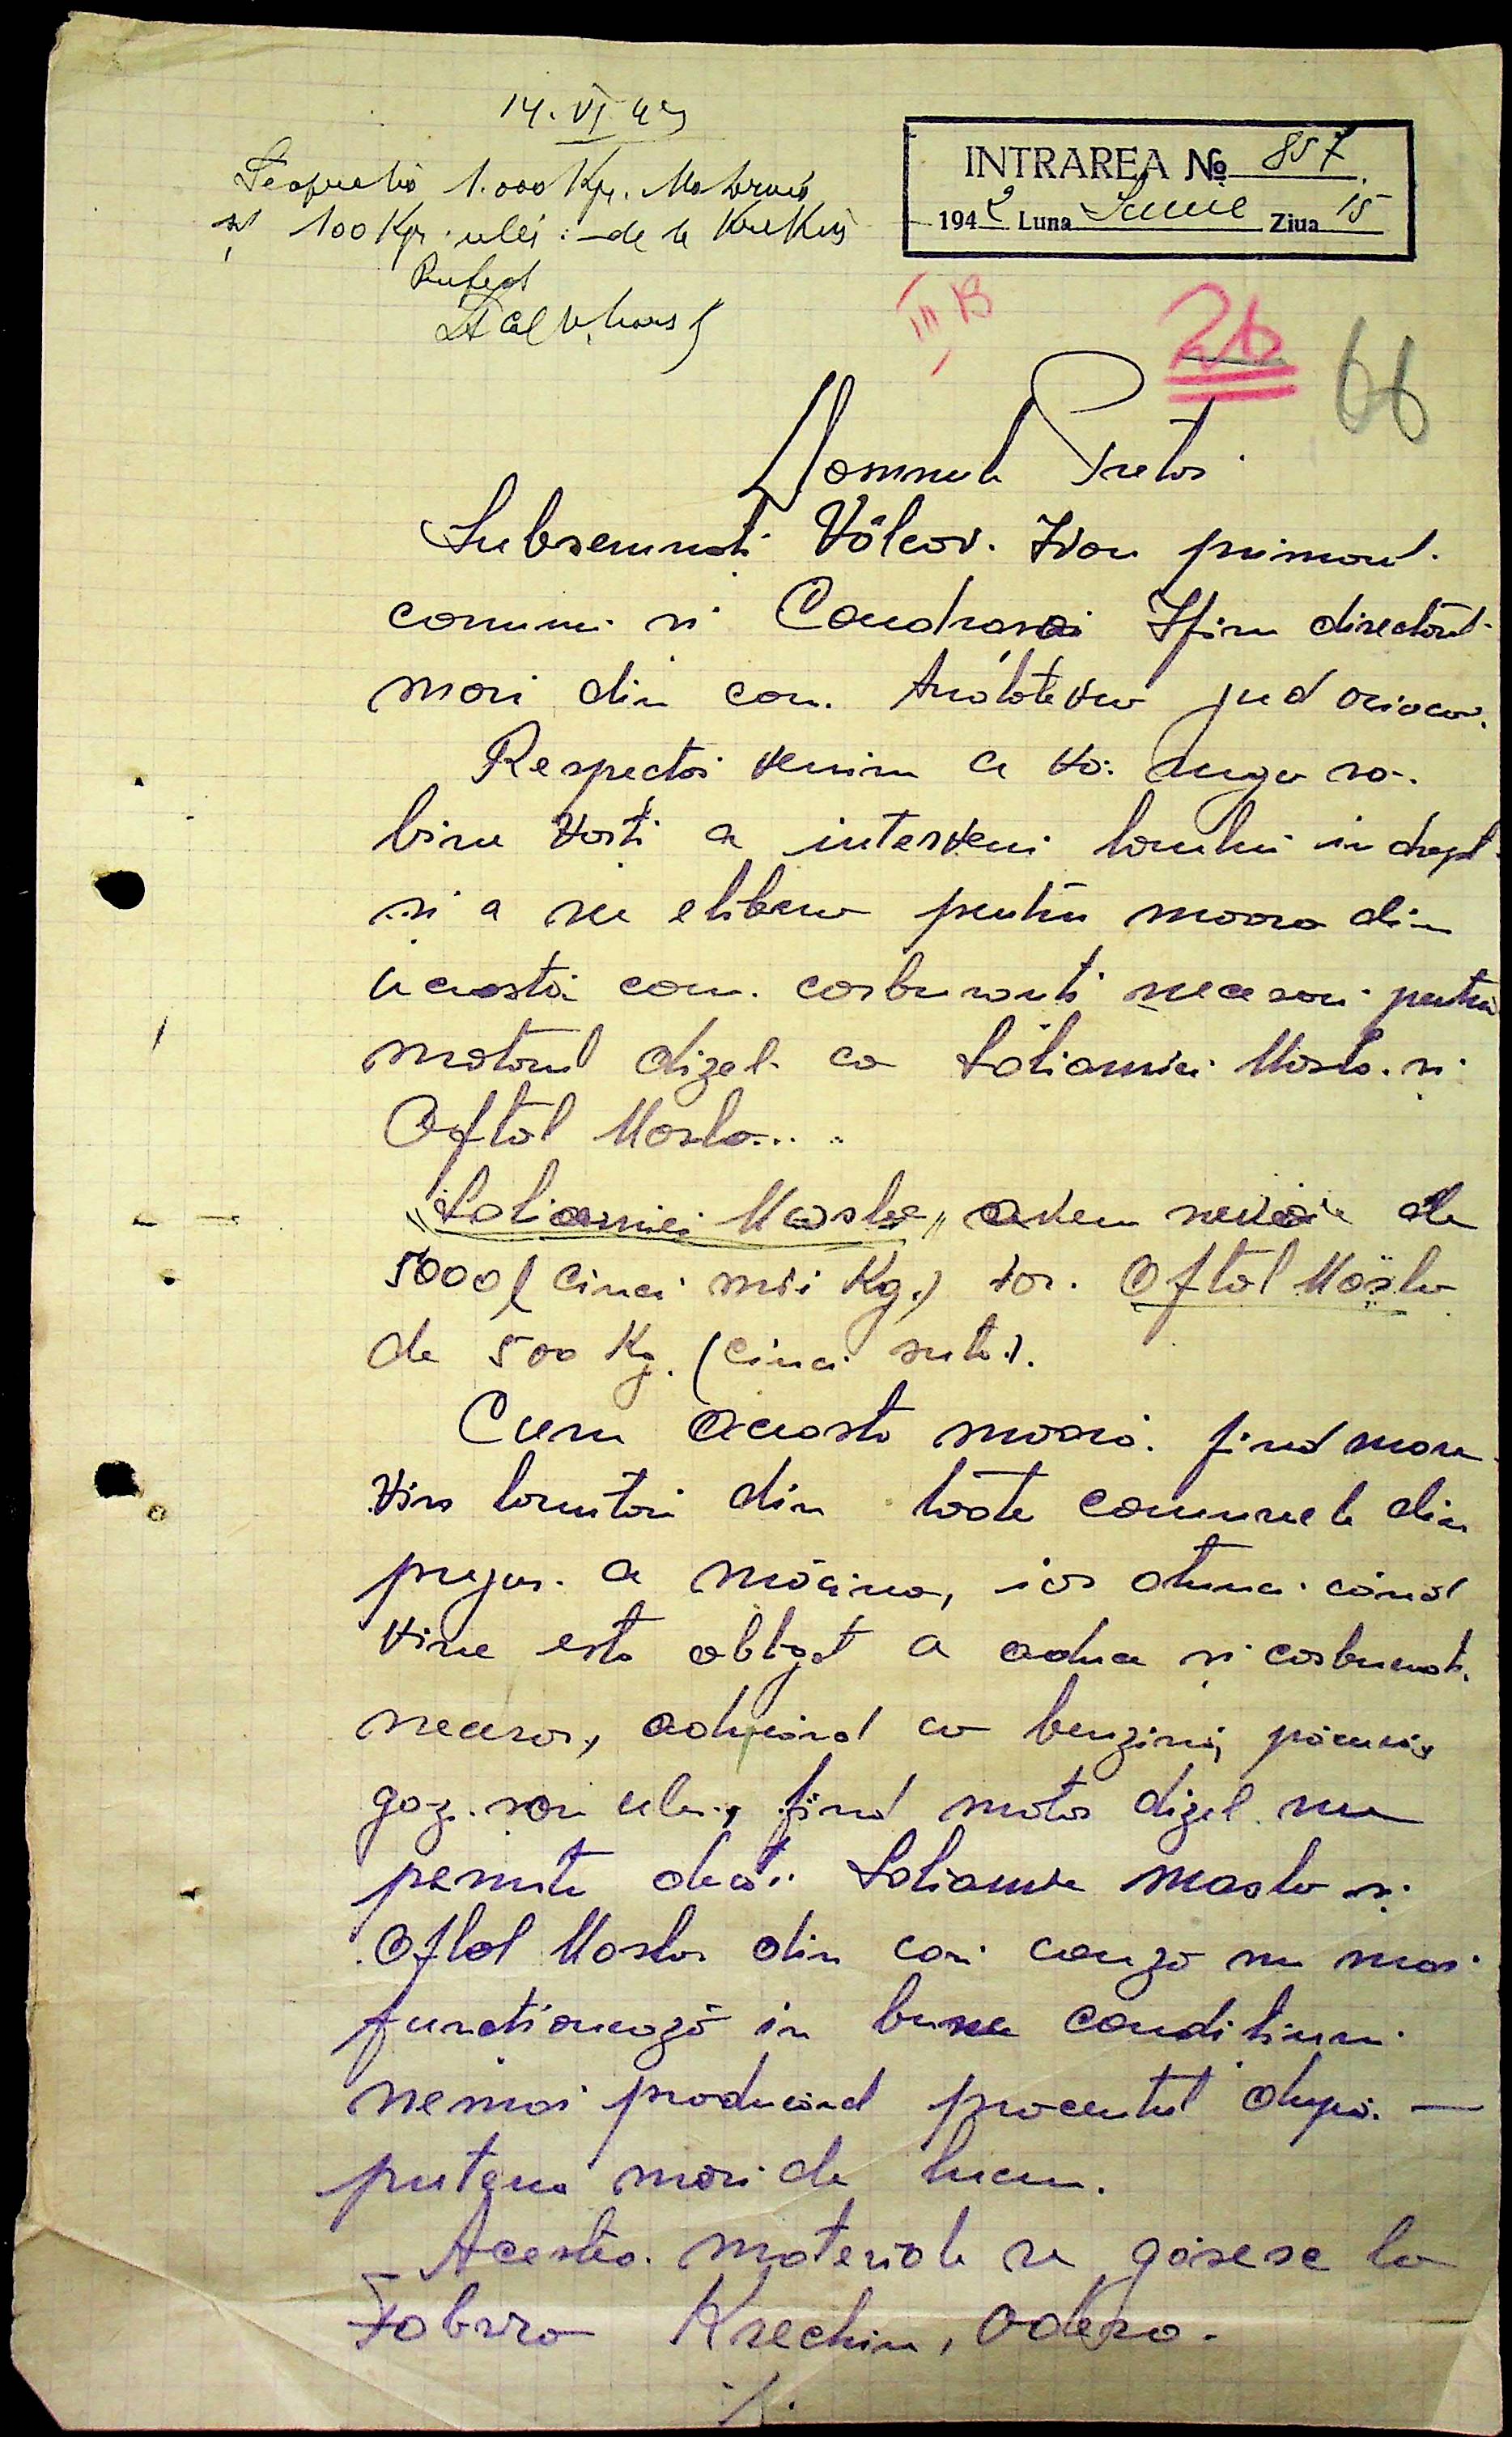 14. VI 42
1.000 Kgr. Motorină
și 100 Kgr. ulei :- de la Krekin
Prefect
Lt Col
INTRAREA № 857
1942 Luna Iunie Ziua 15
III B
26
66
Domnule Pretor
Subsemnati Vâlcov. Ivan primarul.
comuni si Condrasai Ifim directorul.
mori din com. jud
Respectos venim a vă ruga să.
bine voiti a interveni locului in drept
si a ne elibera pentru moara din
aciasta com. carburanti necesari pentru
motorul dizel ca Soliarnici Maslo. si
Oftol Maslo...
„Soliarnici Maslo„ avem nevoie de
5000 (cinci mii Kg.) iar. Oftol Maslo
de 500 Kg. (cinci sute).
Cum aciasta moară. find mare
vin locuitori din toate comunele din
prejur. a măcina, iar atunci când
vine este obligat a aduce si carburant.
necesar, aducând cu benzină, păcură,
gaz. sau ulei, find motor dizel nu
permite decât. Soliarnie maslo si
Oftol Maslo din cari cauză nu mai
functionează in bune conditiuni.
nemai producând procentul după. —
putera mori de lucru.
Acestea. materiale se găsesc la
Fabrica Krechin, Odesa.
./.